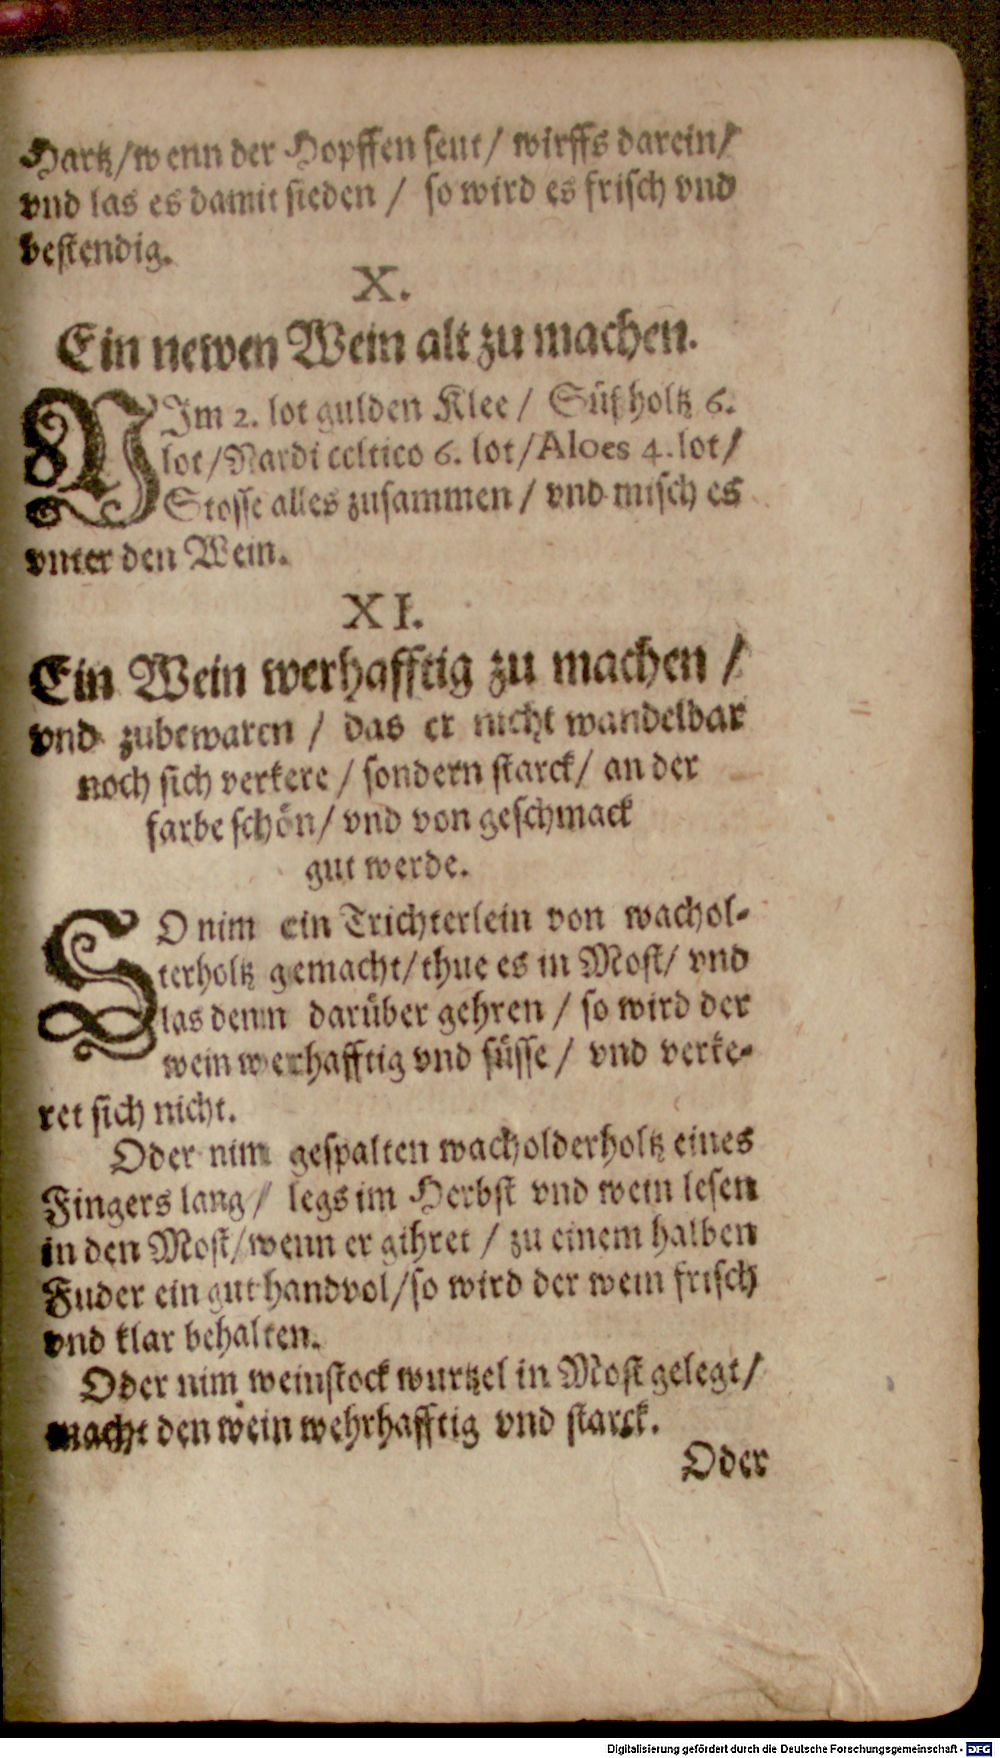 Hartz/wenn der Hopffen seut/ wirffs darein/
vnd las es damit sieden / so wird es frisch vnd
bestendig.
X.
Ein newen Wein alt zu machen.
NIm 2. lot gulden Klee / Süßholtz 6.
lot/Nardi celtico 6. lot/Aloes 4. lot/
Stosse alles zusammen / vnd misch es
vnter den Wein.
XI.
Ein Wein werhafftig zu machen /
vnd zubewaren / das er nicht wandelbar
noch sich verkere / sondern starck/ an der
farbe schön/ vnd von geschmack
gut werde.
SO nim ein Trichterlein von wachol-
terholtz gemacht/thue es in Most/ vnd
las denn darüber gehren / so wird der
wein werhafftig vnd süsse / vnd verke-
ret sich nicht.
Oder nim gespalten wacholderholtz eines
Fingers lang/ legs im Herbst vnd wein lesen
in den Most/wenn er gihret / zu einem halben
Fuder ein gut handvol/so wird der wein frisch
vnd klar behalten.
Oder nim weinstock wurtzel in Most gelegt/
macht den wein wehrhafftig vnd starck.
Oder
Digitalisierung gefördert durch die Deutsche Forschungsgemeinschaft - DFG